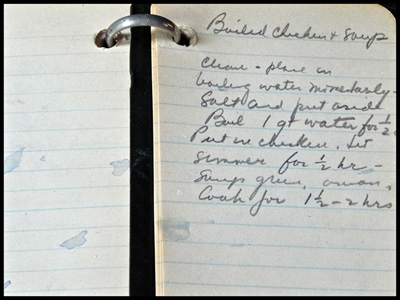 Boiled Chicken & Soup
Clean - place in
boiling water momentarily -
Salt and put aside
Boil 1 qt water for ½
Put in chicken. Let
simmer for ½ hr -
Soup green, onion,
Cook for 1½ - 2 hrs